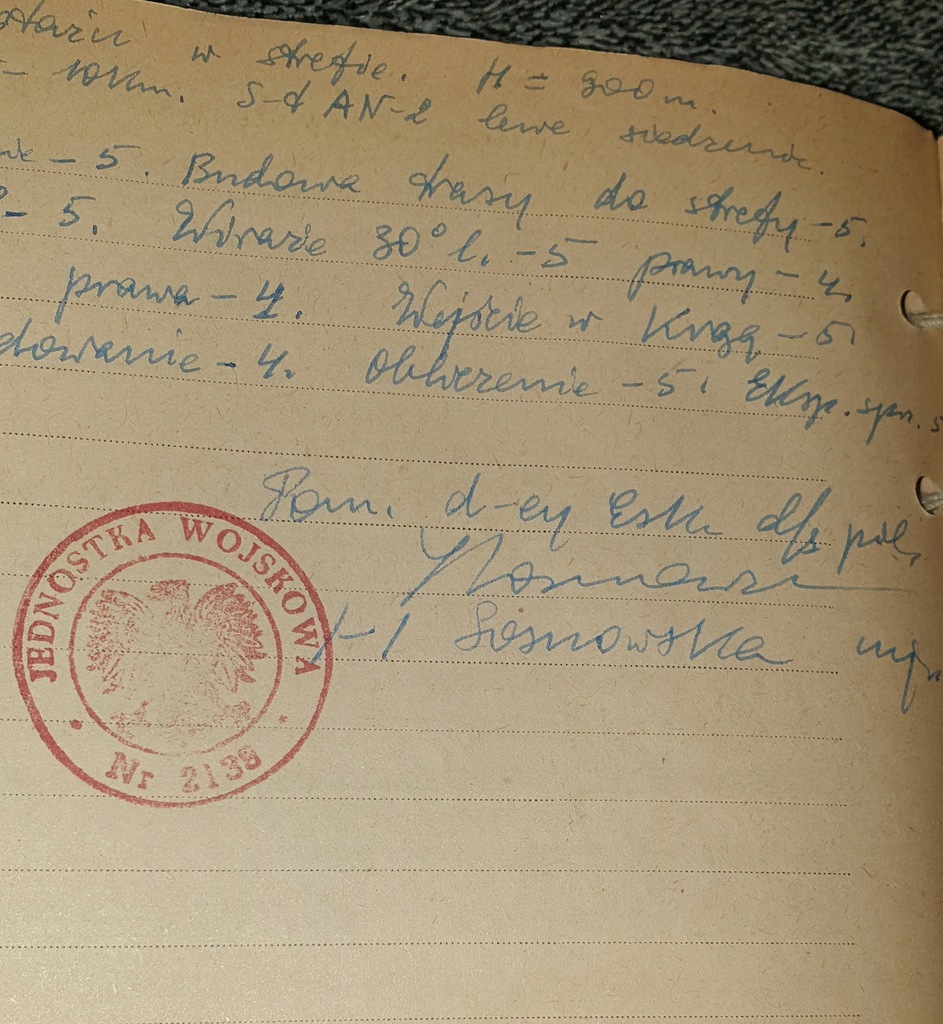 w strefie. H = 300 m.
10km. S-t AN-2 lewe siedzenie.
nie - 5. Budowa trasy do strefy - 5.
° - 5. Wiraże 30° l. - 5 prawy - 4.
prawa - 4. Wejście w Krąg - 5.
dowanie - 4. Obliczenie - 5. Eksp. spr. 5
Pom. d-cy Esk. d/s pil.
/-/ Sosnowska mjr
JEDNOSTKA WOJSKOWA
Nr 2139